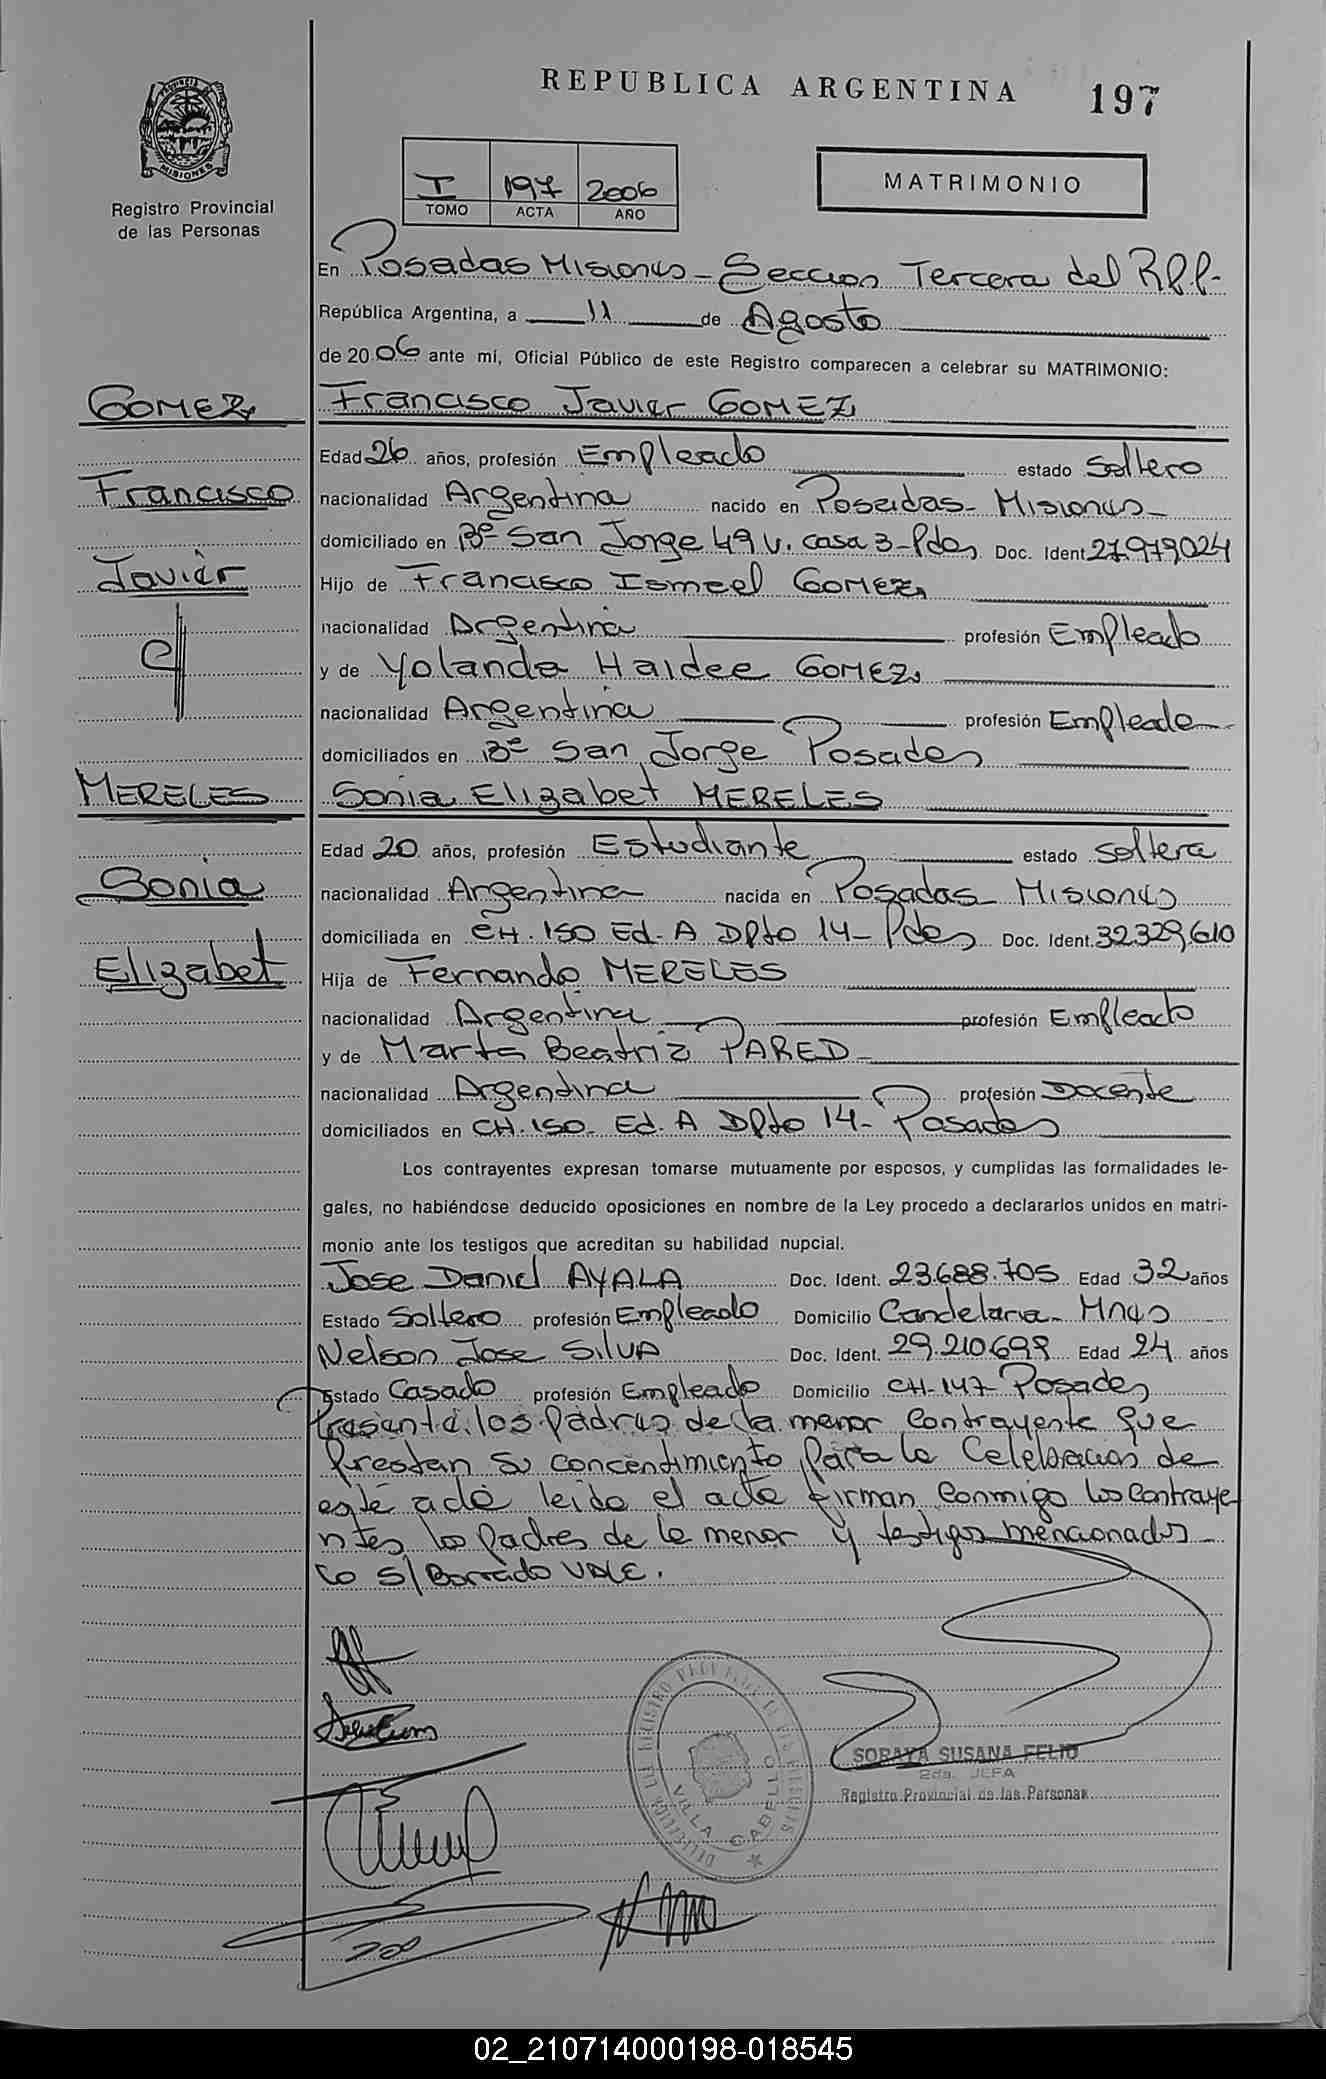 REPUBLICA ARGENTINA 197
MISIONES
Registro Provincial
de las Personas
I 197 2006
TOMO ACTA AÑO
MATRIMONIO
En Posadas Misiones - Seccion Tercera del R.P.P.-
República Argentina, a 11 de Agosto
de 2006 ante mí, Oficial Público de este Registro comparecen a celebrar su MATRIMONIO:
GOMEZ Francisco Javier GOMEZ
Edad 26 años, profesión Empleado estado Soltero
Francisco nacionalidad Argentina nacido en Posadas - Misiones -
domiciliado en Bº San Jorge 49 v. casa 3 - Pdas Doc. Ident. 27.979.024
Javier Hijo de Francisco Ismael GOMEZ
nacionalidad Argentina profesión Empleado
y de Yolanda Haidee GOMEZ
nacionalidad Argentina profesión Empleada
domiciliados en Bº San Jorge Posadas
MERELES Sonia Elizabet MERELES
Edad 20 años, profesión Estudiante estado Soltera
Sonia nacionalidad Argentina nacida en Posadas Misiones
domiciliada en CH. 150 Ed. A Dpto 14 - Pdas Doc. Ident. 32.329.610
Elizabet Hija de Fernando MERELES
nacionalidad Argentina profesión Empleado
y de Marta Beatriz PARED -
nacionalidad Argentina profesión Docente
domiciliados en CH. 150 - Ed. A Dpto 14 - Posadas
Los contrayentes expresan tomarse mutuamente por esposos, y cumplidas las formalidades le-
gales, no habiéndose deducido oposiciones en nombre de la Ley procedo a declararlos unidos en matri-
monio ante los testigos que acreditan su habilidad nupcial.
Jose Daniel AYALA Doc. Ident. 23.688.705 Edad 32 años
Estado Soltero profesión Empleado Domicilio Candelaria - Mnes
Nelson Jose SILVA Doc. Ident. 29.210.698 Edad 24 años
Estado Casado profesión Empleado Domicilio CH-147 - Posadas
Presente los padres de la menor contrayente que
prestan su concentimiento para la Celebracion de
este acto leida el acta firman conmigo los contraye
ntes los padres de la menor y testigos mencionados
lo s/ Borrado VALE.
VILLA CABELLO
SORAYA SUSANA FELIO
2da. JEFA
Registro Provincial de las Personas
02_210714000198-018545